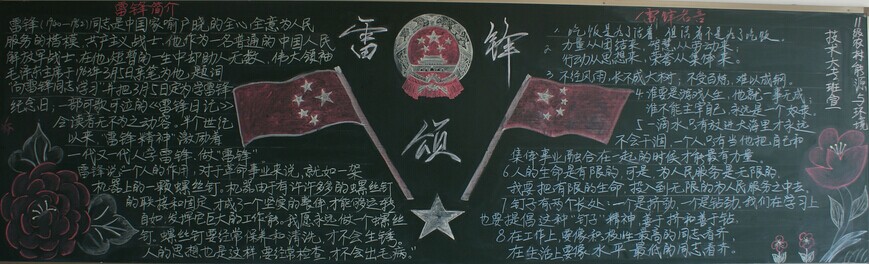 雷锋简介
雷锋(1940—1962)同志是中国家喻户晓的全心全意为人民
服务的楷模,共产主义战士,他作为一名普通的中国人民
解放军战士,在他短暂的一生中却助人无数,伟大领袖
毛泽东主席于1963年3月5日亲笔为他题词
"向雷锋同志学习"并把3月5日定为学雷锋
纪念日,一部可歌可泣的《雷锋日记》
令读者无不为之动容,半个世纪
以来"雷锋精神"激励着
一代又一代人学雷锋,做"雷锋"
雷锋说:一个人的作用,对于革命事业来说,就如一架
机器上的一颗螺丝钉,机器由于有许许多多的螺丝钉
的联接和固定,才成了一个坚实的整体,才能够运转
自如,发挥它巨大的工作能,我愿永远做一个螺丝
钉,螺丝钉要经常保养和清洗,才不会生锈。
人的思想也是这样,要经常检查,才不会出毛病。"
雷锋
颂
雷锋名言
1 吃饭是为了活着,但活着不是为了吃饭。
2 力量从团结来,智慧从劳动来,
行动从思想来,荣誉从集体来。
3 不经风雨,长不成大树,不受百炼,难以成钢。
4 谁要是游戏人生,他就一事无成,
谁不能主宰自己,永远是一个奴隶。
5 一滴水只有放进大海里才永远
不会干涸,一个人只有当他把自己和
集体事业融合在一起的时候才能最有力量。
6 人的生命是有限的,可是,为人民服务是无限的,
我要把有限的生命,投入到无限的为人民服务之中去。
7 钉子有两个长处:一个是挤劲,一个是钻劲,我们在学习上
也要提倡这种"钉子"精神,善于挤和善于钻。
8 在工作上,要向积极性最高的同志看齐,
在生活上,要向水平最低的同志看齐。
11级农村能源与环境
技术大专班宣